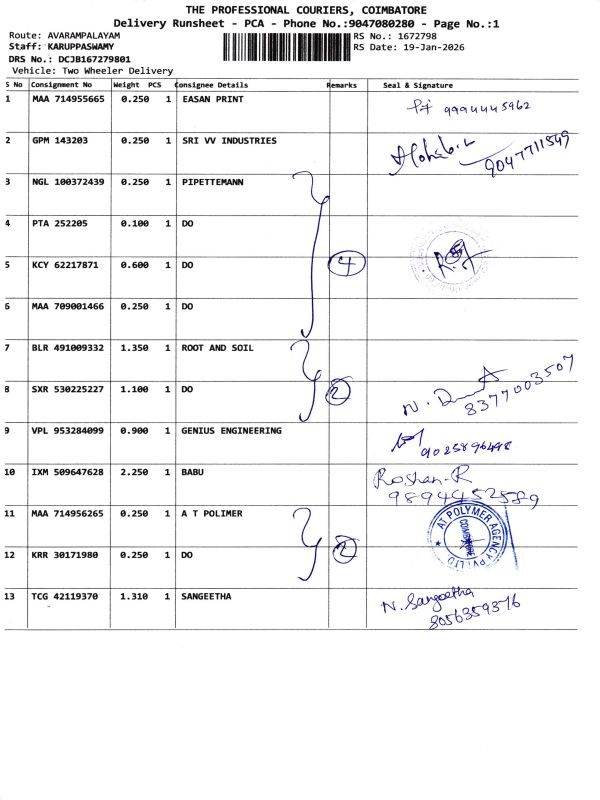 THE PROFESSIONAL COURIERS, COIMBATORE
Delivery Runsheet - PCA - Phone No.:9047080280 - Page No.:1
Route: AVARAMPALAYAM RS No.: 1672798
Staff: KARUPPASWAMY RS Date: 19-Jan-2026
DRS No.: DCJB167279801
Vehicle: Two Wheeler Delivery
S No Consignment No Weight PCS Consignee Details Remarks Seal & Signature
1 MAA 714955665 0.250 1 EASAN PRINT 9994445962
2 GPM 143203 0.250 1 SRI VV INDUSTRIES 9047711549
3 NGL 100372439 0.250 1 PIPETTEMANN
4 PTA 252205 0.100 1 DO
5 KCY 62217871 0.600 1 DO 4
6 MAA 709001466 0.250 1 DO
7 BLR 491009332 1.350 1 ROOT AND SOIL
8 SXR 530225227 1.100 1 DO 2 8377003507
9 VPL 953284099 0.900 1 GENIUS ENGINEERING 9025896498
10 IXM 509647628 2.250 1 BABU Roshan.R
9894452589
11 MAA 714956265 0.250 1 A T POLIMER AT POLYMER AGENCY PVT. LTD
12 KRR 30171980 0.250 1 DO 2
13 TCG 42119370 1.310 1 SANGEETHA N. Sangeetha
8056359376